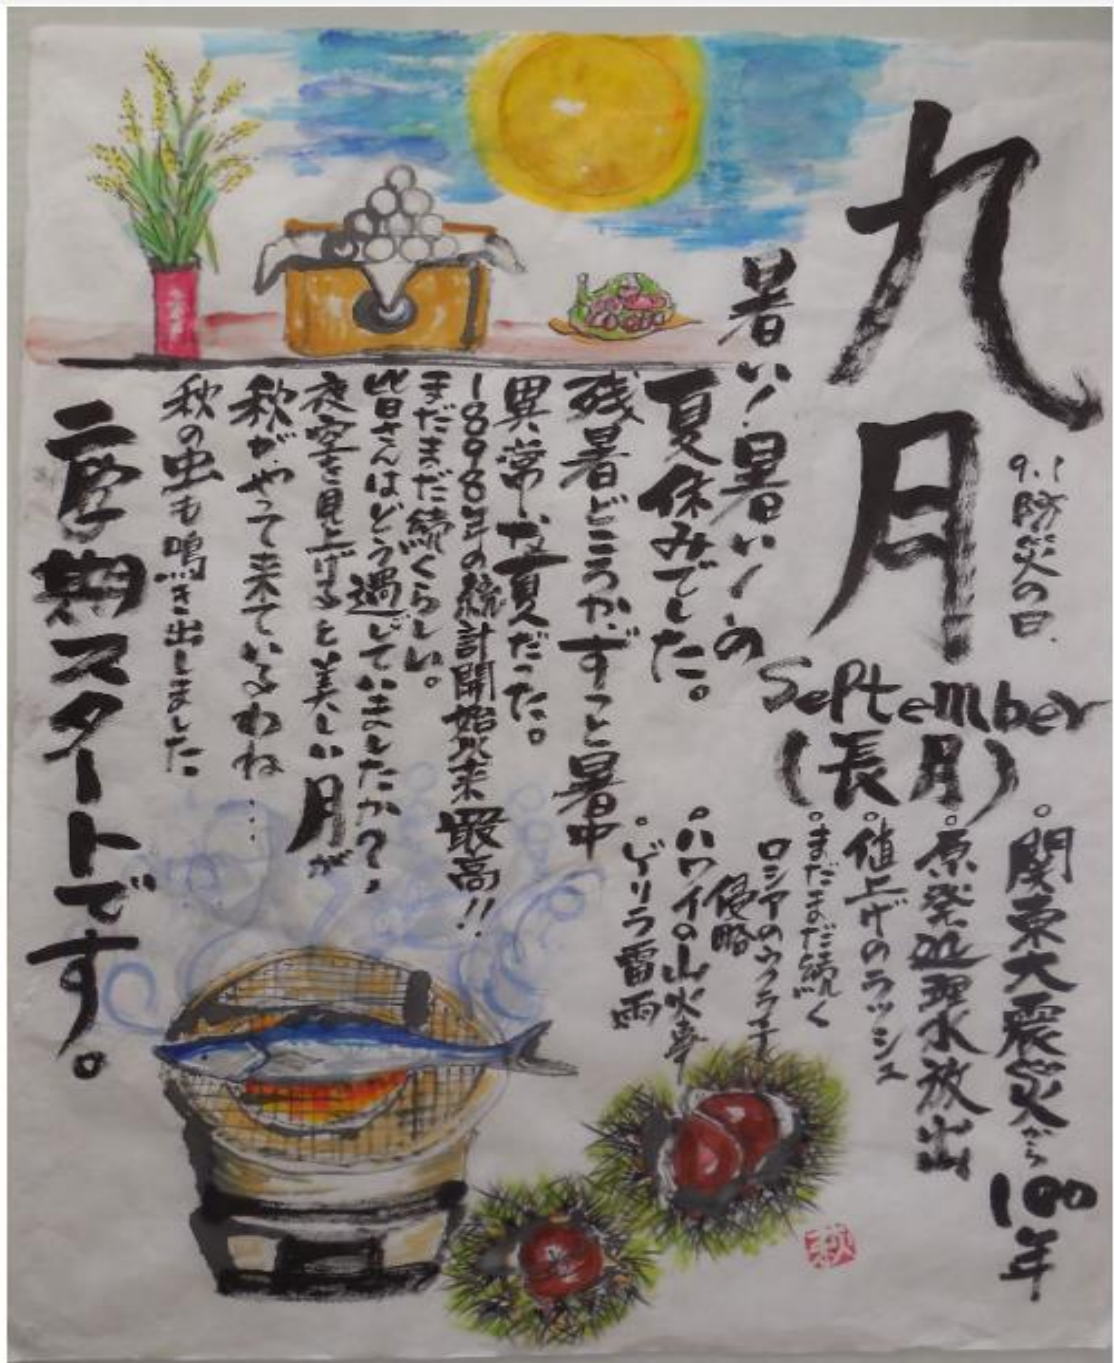 九月
9.1防災の日
September
(長月)
。関東大震災から100年
。原発処理水放出
。値上げのラッシュ
。まだまだ続く
ロシアのウクライナ
侵略
。ハワイの山火事
。ゲリラ雷雨
暑い！暑い！の
夏休みでした。
残暑どころかずっと暑中
異常な夏だった。
1898年の統計開始以来最高!!
まだまだ続くらしい。
皆さんはどう過していましたか？
夜空を見上げると美しい月が
秋がやって来ているわね…
秋の虫も鳴き出しました
二学期スタートです。
秋